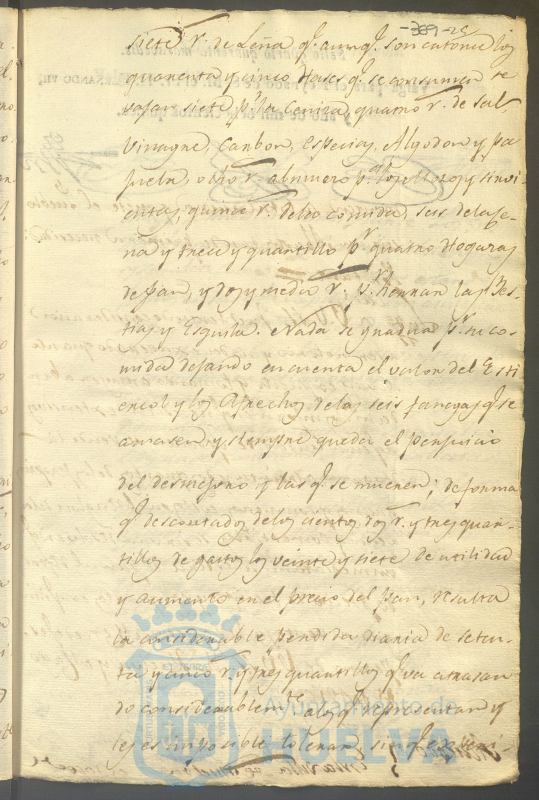 -369-25
siete r.^s de Leña q.^e aunq.^e son catorce los
quarenta y cinco Hases q.^e se consumen se
vajan siete p.^r la Ceniza, quatro r.^s de Sal
Vinagre, Carbon, Especias, Algodon y pa
juela, ocho r.^s al numero p.^a los Mozos y sirvi
entas, quince r.^s de la comida, seis de la Ce
na y trece y quartillo p.^r quatro Hogazas
de Pan, y dos y medio r.^s p.^r Herrar las Bes
tias y Esquila. Nada se gradua p.^r su co
mida dejando en cuenta el valor del Esti
ercol y los Afrechos de las seis fanegas q.^e se
amasen, y siempre queda el perjuicio
del desmejoro y las q.^e se mueren; de forma
q.^e descontados de los cientos dos r.^s y tres quar
tillos de gastos los veinte y siete de utilidad
y aumento en el precio del pan, resulta
la considerable perdida diaria de seten
ta y cinco r.^s y tres quartillos q.^e va atrasan
do considerablem.^te a los q.^e representan y
les es imposible tolerar, sin q.^e
Ayuntamiento de
HUELVA